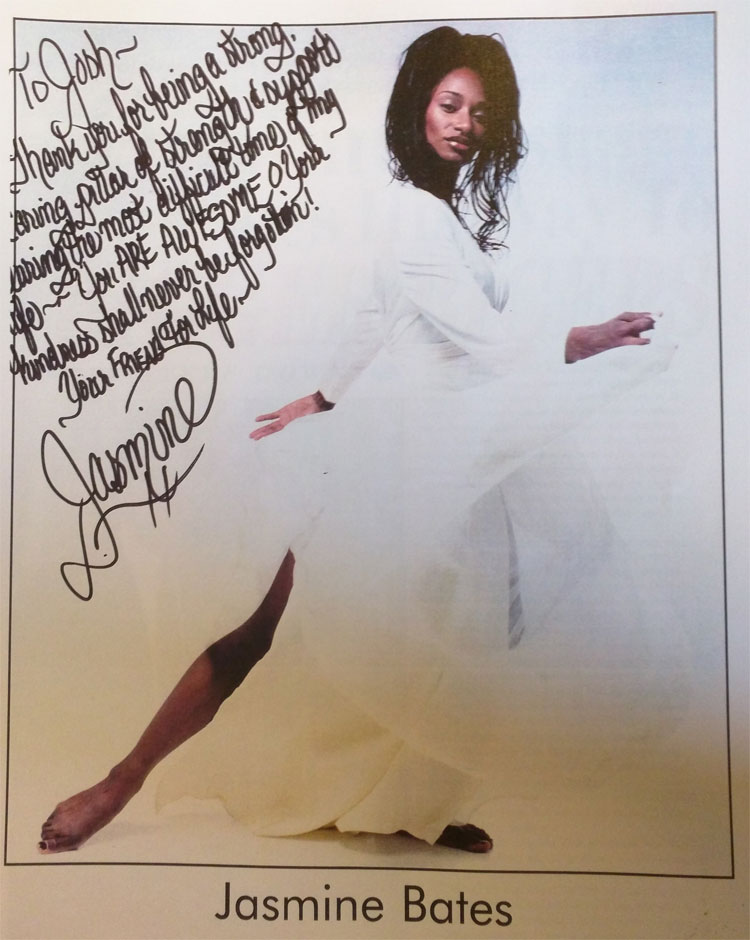 To Josh~
Thank you for being a strong,
caring pillar of strength & support
during the most difficult time of my
life~ You ARE AWESOME & Your
kindness shall never be forgotten!
Your FRIEND For Life~
Jasmine
Jasmine Bates